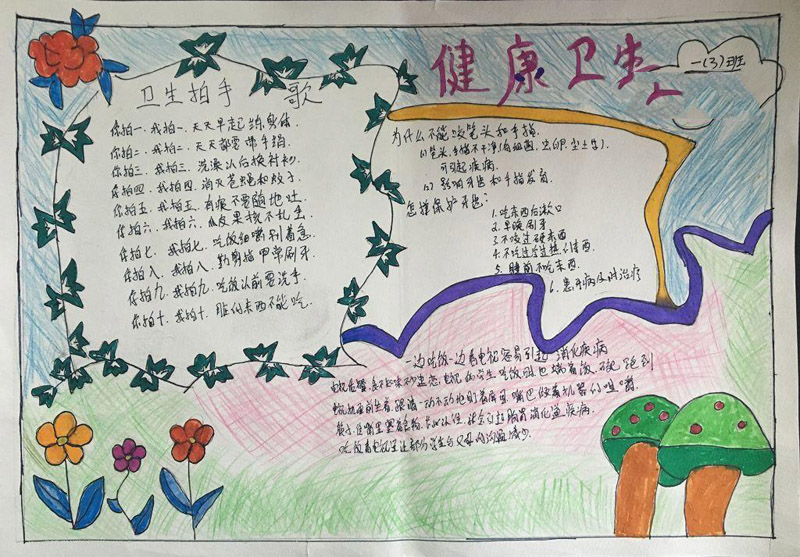 健康卫生
一(3)班
卫生拍手歌
你拍一、我拍一、天天早起练身体.
你拍二、我拍二、天天都要带手绢.
你拍三、我拍三、洗澡以后换衬衫.
你拍四、我拍四、消灭苍蝇和蚊子.
你拍五、我拍五、有痰不要随地吐.
你拍六、我拍六、瓜皮果核不乱丢.
你拍七、我拍七、吃饭细嚼别着急.
你拍八、我拍八、勤剪指甲常刷牙.
你拍九、我拍九、吃饭以前要洗手.
你拍十、我拍十、脏的东西不能吃.
为什么不能咬笔头和手指.
(1)笔头、手指不干净(有细菌、虫卵、尘土等).
可引起疾病.
(2)影响牙齿和手指发育.
怎样保护牙齿:
1.吃东西后漱口
2.早晚刷牙
3.不咬过硬东西
4.不吃过冷过热东西
5.睡前不吃东西.
6.患牙病及时治疗
一边吃饭一边看电视容易引起消化疾病
学生吃饭时也端着饭碗跑到
电视机前坐着,眼睛一动不动地盯着屏幕,嘴巴做着机器的咀嚼
会引起肠胃消化道疾病.
吃饭看电视还让部分学生与父母的沟通减少.